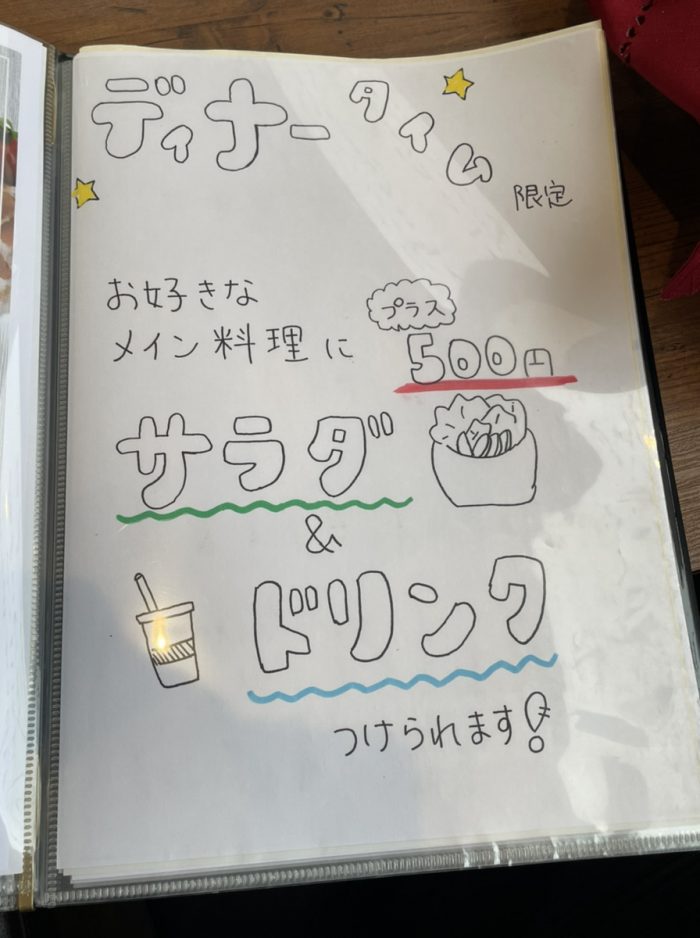 ディナータイム
限定
お好きな
メイン料理に
プラス
500円
サラダ
&
ドリンク
つけられます!